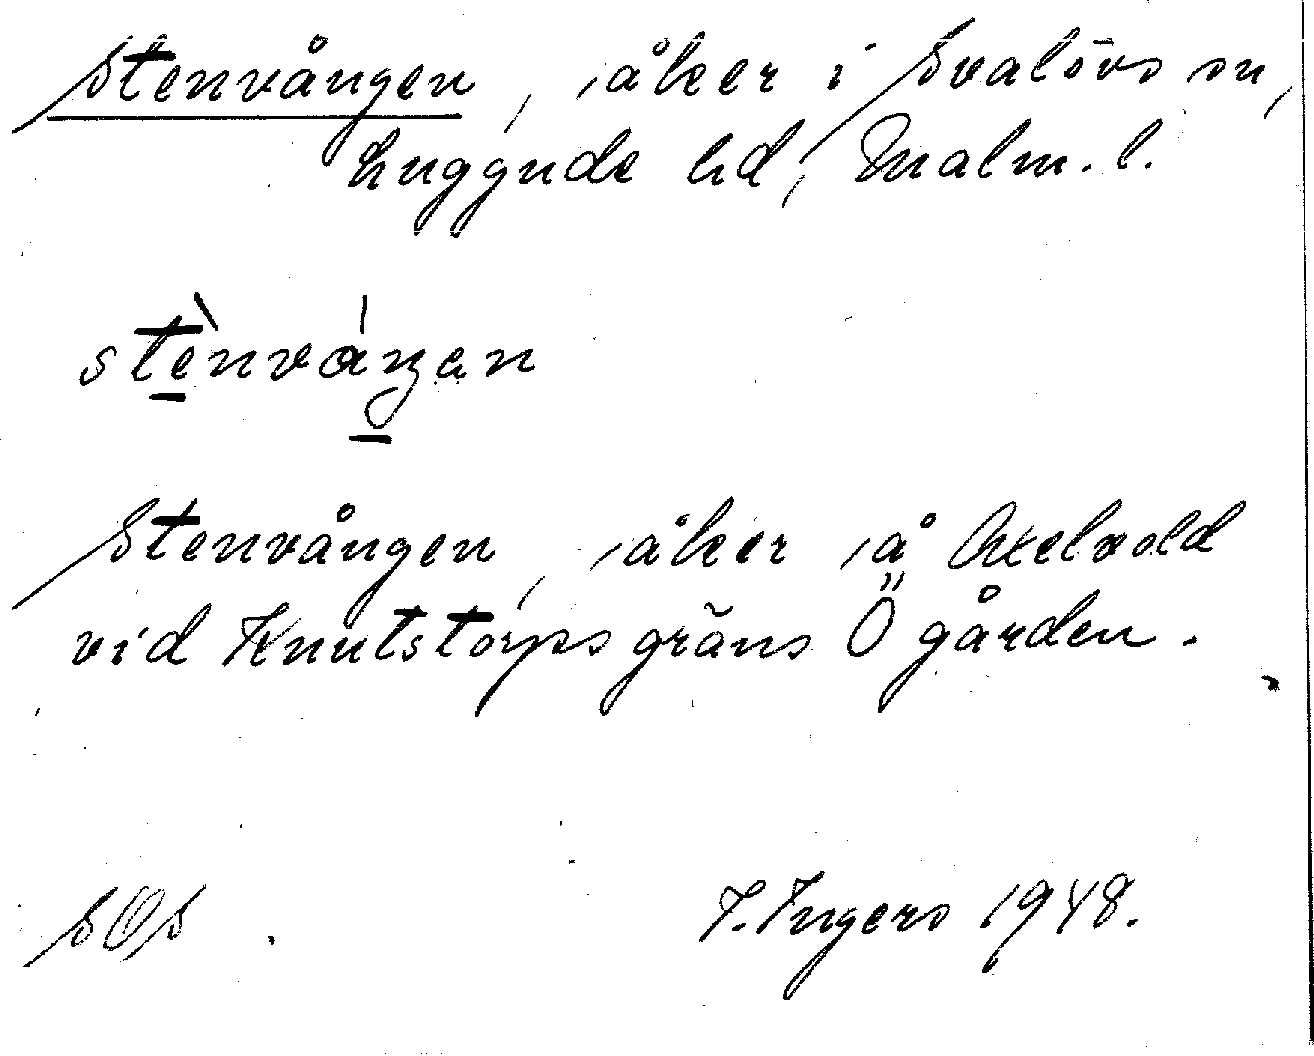 Stenvången, åker i Svalövs sn,
Luggude hd, Malm. l.
stènváŋen
Stenvången, åker å Axelvold
vid Knutstorps gräns Ö gården.
SOS
I. Ingers 1948.